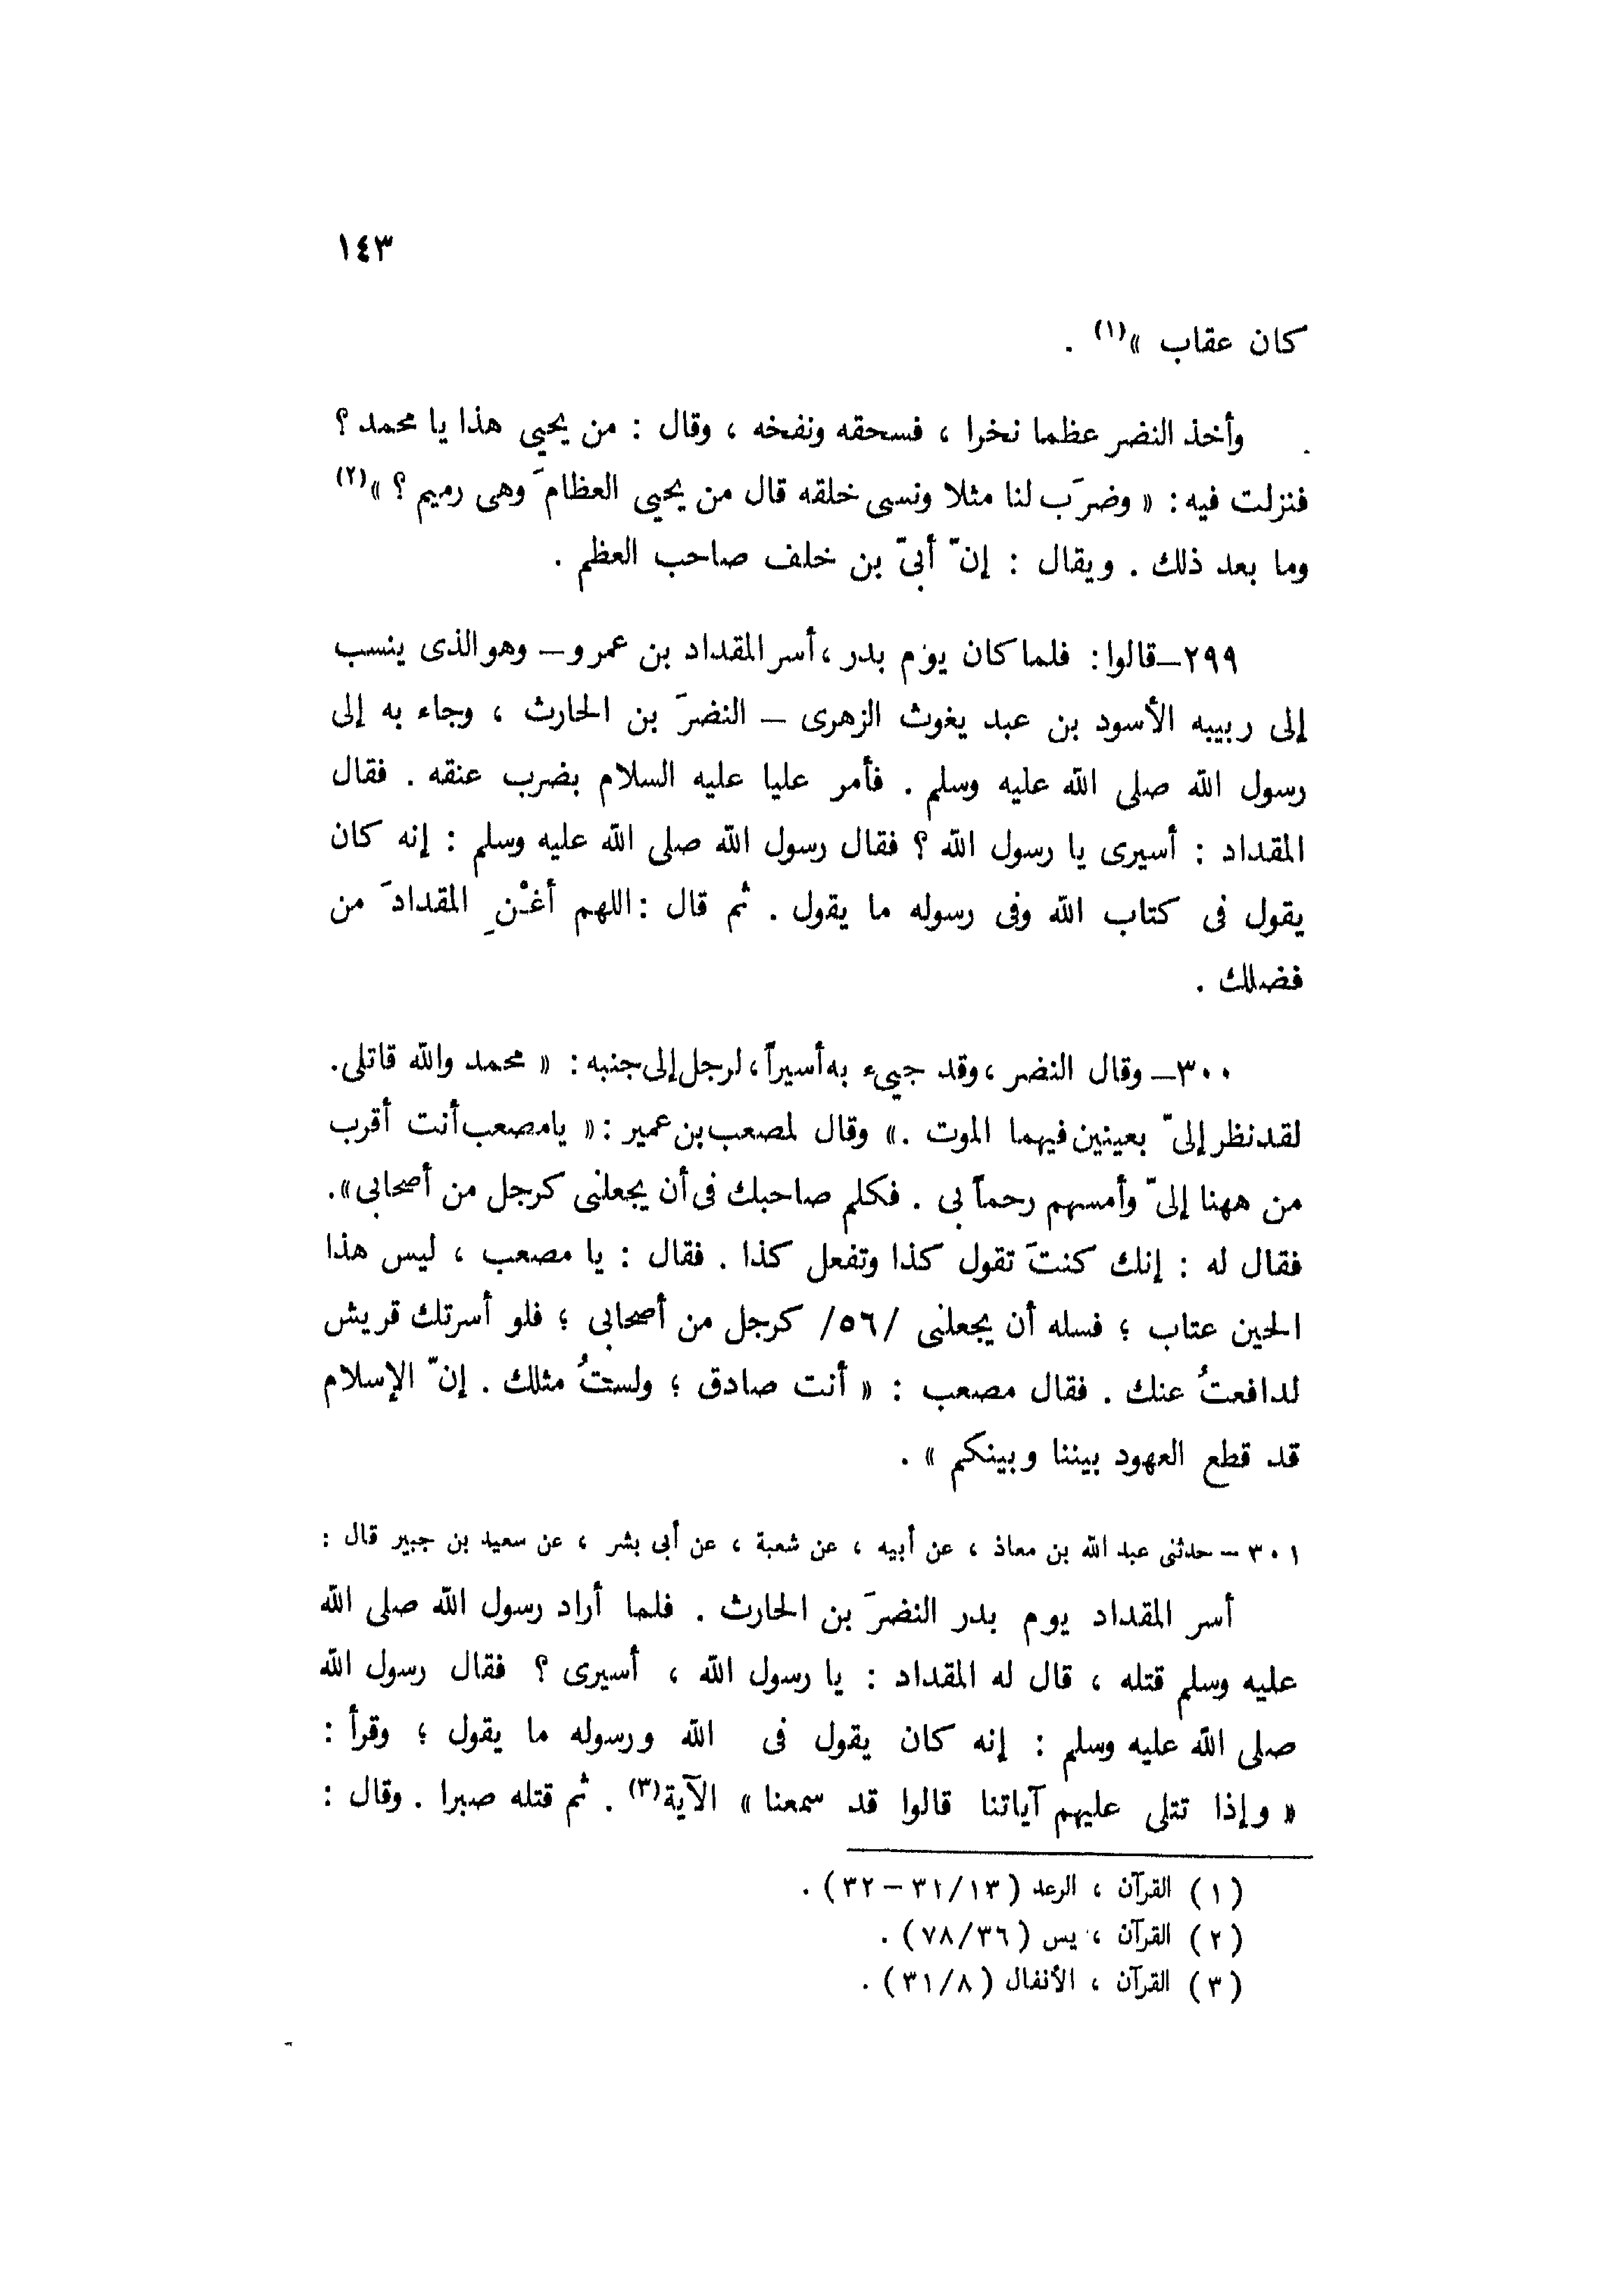 ١٤٣
كان عقاب »(١) .
وأخذ النضر عظما نخرا ، فسحقه ونفخه ، وقال : من يحيى هذا يا محمد ؟
فنزلت فيه : « وضرَب لنا مثلا ونسى خلقه قال من يحيى العظامَ وهى رميم ؟ »(٢)
وما بعد ذلك . ويقال : إنّ أبىّ بن خلف صاحب العظم .
٢٩٩ــ قالوا : فلما كان يوم بدر ، أسر المقداد بن عمرو ــ وهو الذى ينسب
إلى ربيبه الأسود بن عبد يغوث الزهرى ــ النضرَ بن الحارث ، وجاء به إلى
رسول الله صلى الله عليه وسلم . فأمر عليا عليه السلام بضرب عنقه . فقال
المقداد : أسيرى يا رسول الله ؟ فقال رسول الله صلى الله عليه وسلم : إنه كان
يقول فى كتاب الله وفى رسوله ما يقول . ثم قال : اللهم أغْنِ المقدادَ من
فضلك .
٣٠٠ــ وقال النضر ، وقد جيىء به أسيراً ، لرجل إلى جنبه : « محمد والله قاتلى .
لقد نظر إلىّ بعينين فيهما الموت . » وقال لمصعب بن عمير : « يا مصعب أنت أقرب
من ههنا إلىّ وأمسهم رحماً بى . فكلم صاحبك فى أن يجعلنى كرجل من أصحابى » .
فقال له : إنك كنتَ تقول كذا وتفعل كذا . فقال : يا مصعب ، ليس هذا
الحين عتاب ؛ فسله أن يجعلنى /٥٦/ كرجل من أصحابى ؛ فلو أسرتك قريش
لدافعتُ عنك . فقال مصعب : « أنت صادق ؛ ولستُ مثلك . إنّ الإسلام
قد قطع العهود بيننا وبينكم » .
٣٠١ ــ حدثنى عبد الله بن معاذ ، عن أبيه ، عن شعبة ، عن أبى بشر ، عن سعيد بن جبير قال :
أسر المقداد يوم بدر النضرَ بن الحارث . فلما أراد رسول الله صلى الله
عليه وسلم قتله ، قال له المقداد : يا رسول الله ، أسيرى ؟ فقال رسول الله
صلى الله عليه وسلم : إنه كان يقول فى الله ورسوله ما يقول ؛ وقرأ :
« وإذا تتلى عليهم آياتنا قالوا قد سمعنا » الآية(٣) . ثم قتله صبرا . وقال :
(١) القرآن ، الرعد (٣١/١٣ــ٣٢) .
(٢) القرآن ، يس (٧٨/٣٦) .
(٣) القرآن ، الأنفال (٣١/٨) .